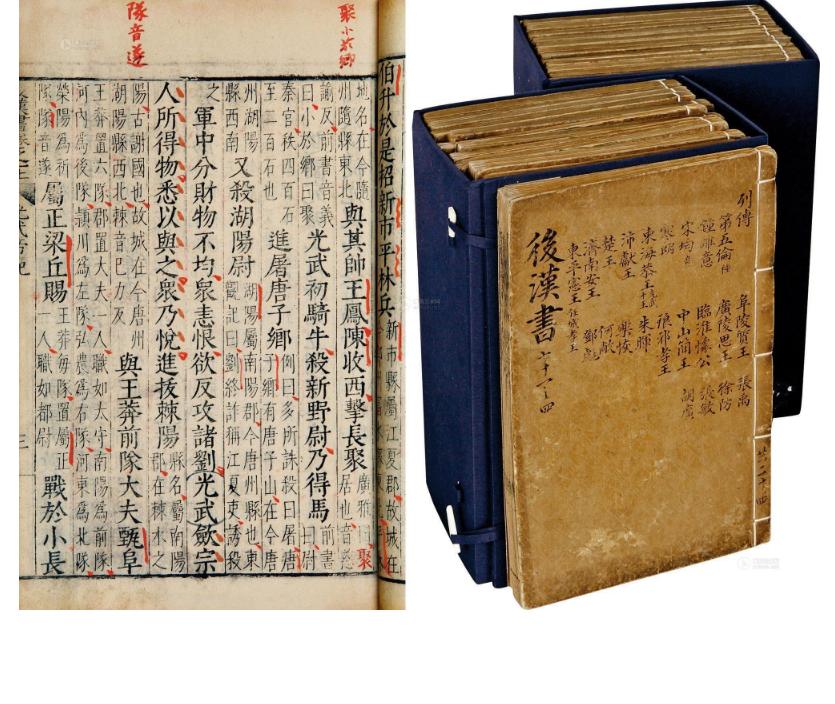 聚小於鄉
隊音遂
伯升於是招新市平林兵 新市縣屬江夏郡故城在
地名在今隨
州隨縣東北
與其帥王鳳陳收西擊長聚
廣雅曰聚
居也音慈
諭反前書音義
曰小於鄉曰聚
光武初騎牛殺新野尉乃得馬
前書
曰尉
秦官秩四百石
至二百石也
進屠唐子鄉
例曰多所誅殺曰屠唐
子鄉有唐子山在今唐
州湖陽
縣西南
又殺湖陽尉
湖陽屬南陽郡今唐州縣也東
觀記曰劉終詐稱江夏吏誘殺
之
軍中分財物不均衆恚恨欲反攻諸劉光武斂宗
人所得物悉以與之衆乃悅進拔棘陽
縣名屬南陽
郡在棘水之
陽古謝國也故城在今唐州
湖陽縣西北棘音己力反
與王莽前隊大夫甄阜
王莽置六隊郡置大夫一人職如太守南陽為前隊
河內為後隊潁川為左隊弘農為右隊河東為兆隊
滎陽為祈
隊隊音遂
屬正梁丘賜
王莽每隊置屬正
一人職如都尉
戰於小長
列傳
第五倫 阜陵質王 張禹
鍾離意 廣陵思王 徐防
宋均 臨淮懷公 張敏
寒朗 中山簡王 胡廣
東海恭王 琅邪孝王
沛獻王 朱暉
楚王 樂恢
濟南安王 何敞
東平憲王 任城孝王 鄧彪
後漢書